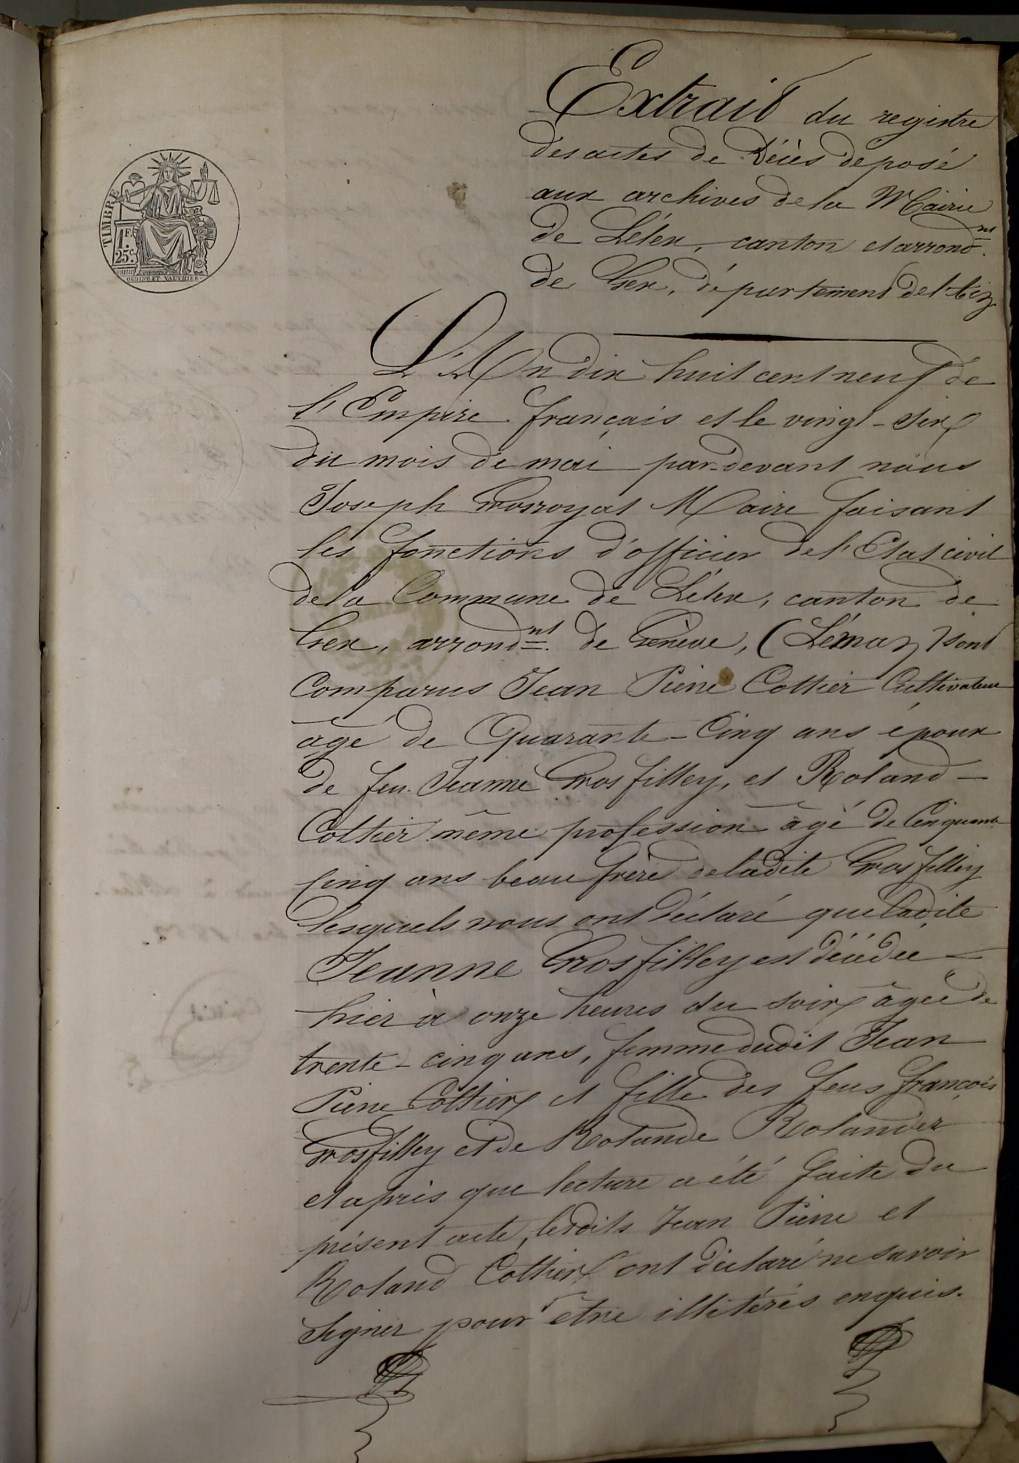 TIMBRE
1F
25c
Extrait du registre
des actes de Décès déposé
aux archives de la Mairie
de Lélex, canton et arrond.nt
de Gex, département de l'Ain
L'An dix huit cent neuf de
l'Empire français et le vingt-six
du mois de mai par-devant nous
Joseph Grosroyat Maire faisant
les fonctions d'officier de l'Etat civil
de la Commune de Lélex, canton de
Gex, arrond.nt de Genève, (Léman) sont
Comparus Jean Pierre Cottier Cultivateur
âgé de Quarante-Cinq ans époux
de feu Jeanne Grosfilley, et Roland
Cottier même profession âgé de Cinquante
Cinq ans beau frère de ladite Grosfilley
lesquels nous ont déclaré que ladite
Jeanne Grosfilley est décédée
hier à onze heures du soir âgée de
trente-cinq ans, femme dudit Jean
Pierre Cottier et fille des feus François
Grosfilley et de Rolande Rolandez
et après que lecture a été faite du
présent acte, lesdits Jean Pierre et
Roland Cottier ont déclaré ne savoir
signer pour être illitérés enquis.